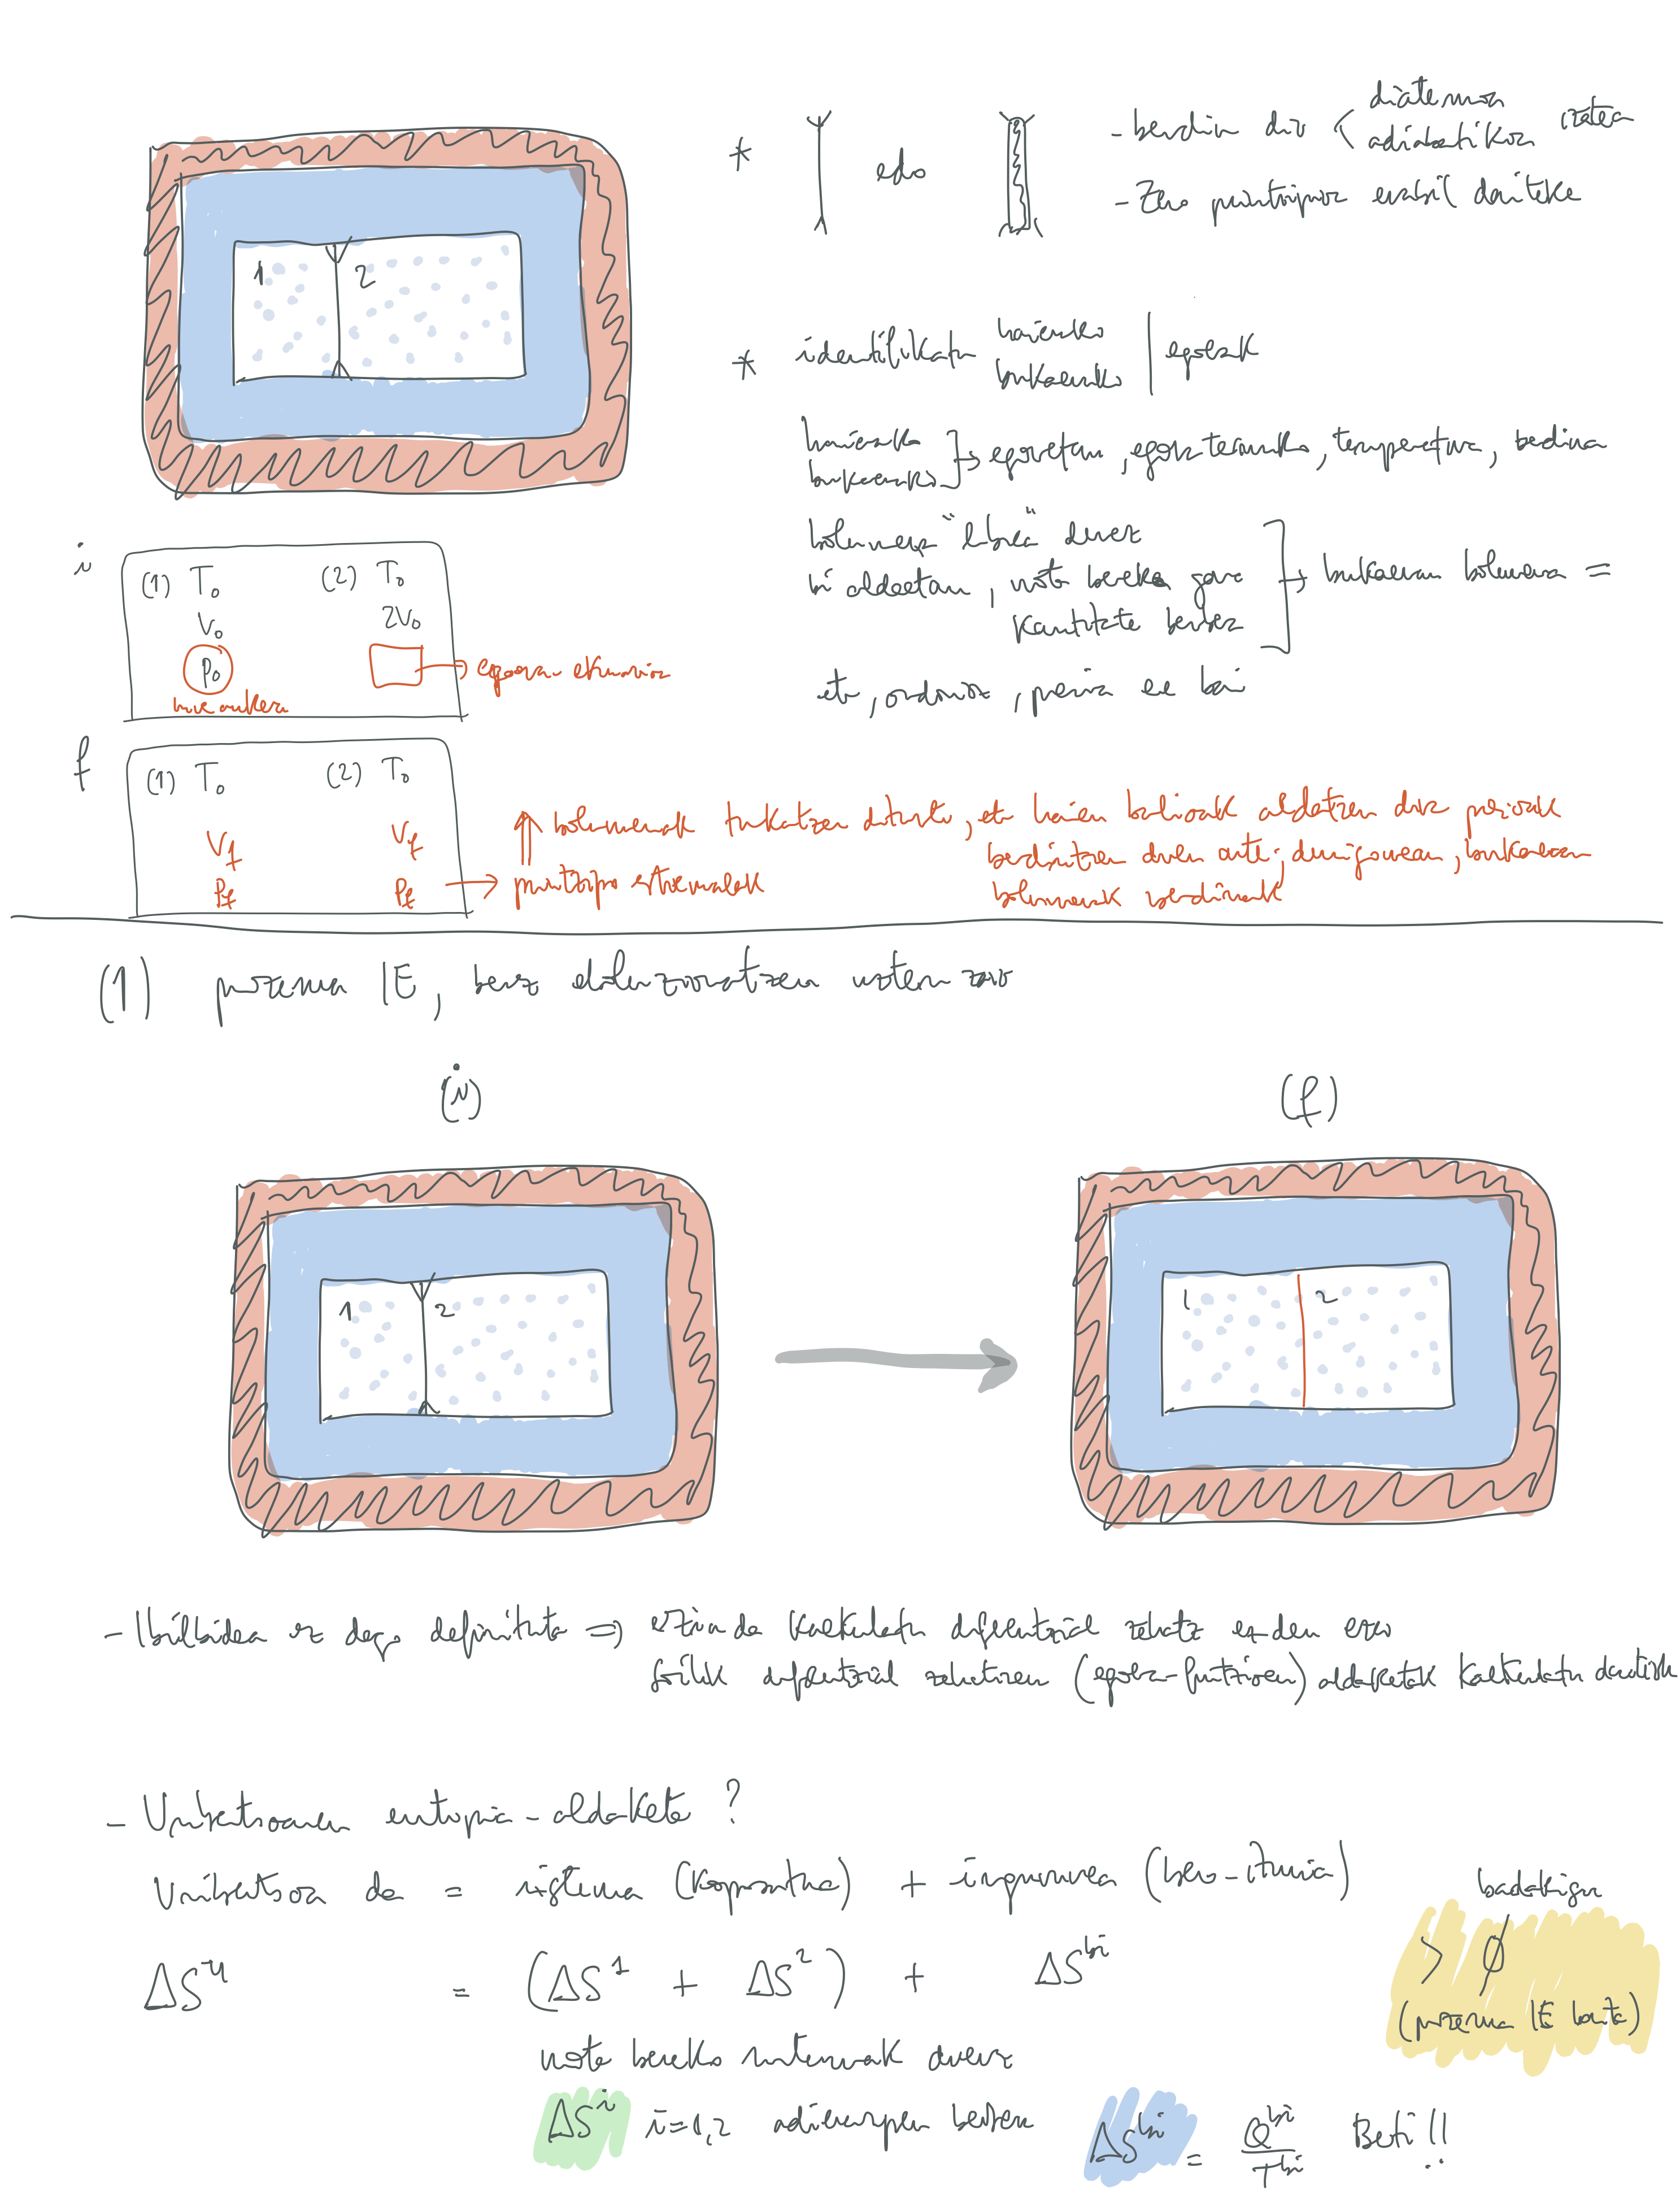 * edo
- berdin dio < diatermoa adiabatikoa izatea
- Zero printzipioa erabil daiteke
1 2
* identifikatu hasierako bukaerako | egoerak
hasierako bukaerako ] → egoeretan, egoera termiko, tenperatura, berdina
bolumena "librea" denez
bi aldeetan, mota bereko gas kantitate berbera ] → bukaeran bolumena =
eta, ondorioz, presioa ere bai
i
(1) T₀ (2) T₀
V₀ 2V₀
P₀ → egoera-ekuazioa
hire aukera
f
(1) T₀ (2) T₀
V_f V_f
P_f P_f → printzipio estremalak
⇑ bolumenak trukatzen dituzte, eta haien balioak aldatzen dira presioak
berdintzen diren arte; denigorrean, bukaeran
bolumenak berdinak
(1) prozesua IE, beraz eboluzionatzen uzten zaio
(i) (f)
1 2 1 2
- Ibilbidea ez dago definituta ⇒ ezina da kalkulatu diferentzial zehatz ez den ezer
soilik diferentzial zehatzen (egoera-funtzioen) aldaketak kalkulatu daitezke
- Unibertsoaren entropia-aldaketa ?
Unibertsoa da = sistema (konposatua) + ingurunea (bero-iturria)
badakigu
ΔSᵘ = (ΔS¹ + ΔS²) + ΔSᵇⁱ > ∅
(prozesua IE baita)
mota bereko sistemak direnez
ΔSⁱ i=1,2 adierazpen berbera
ΔSᵇⁱ = Qᵇⁱ/Tᵇⁱ Beti!!